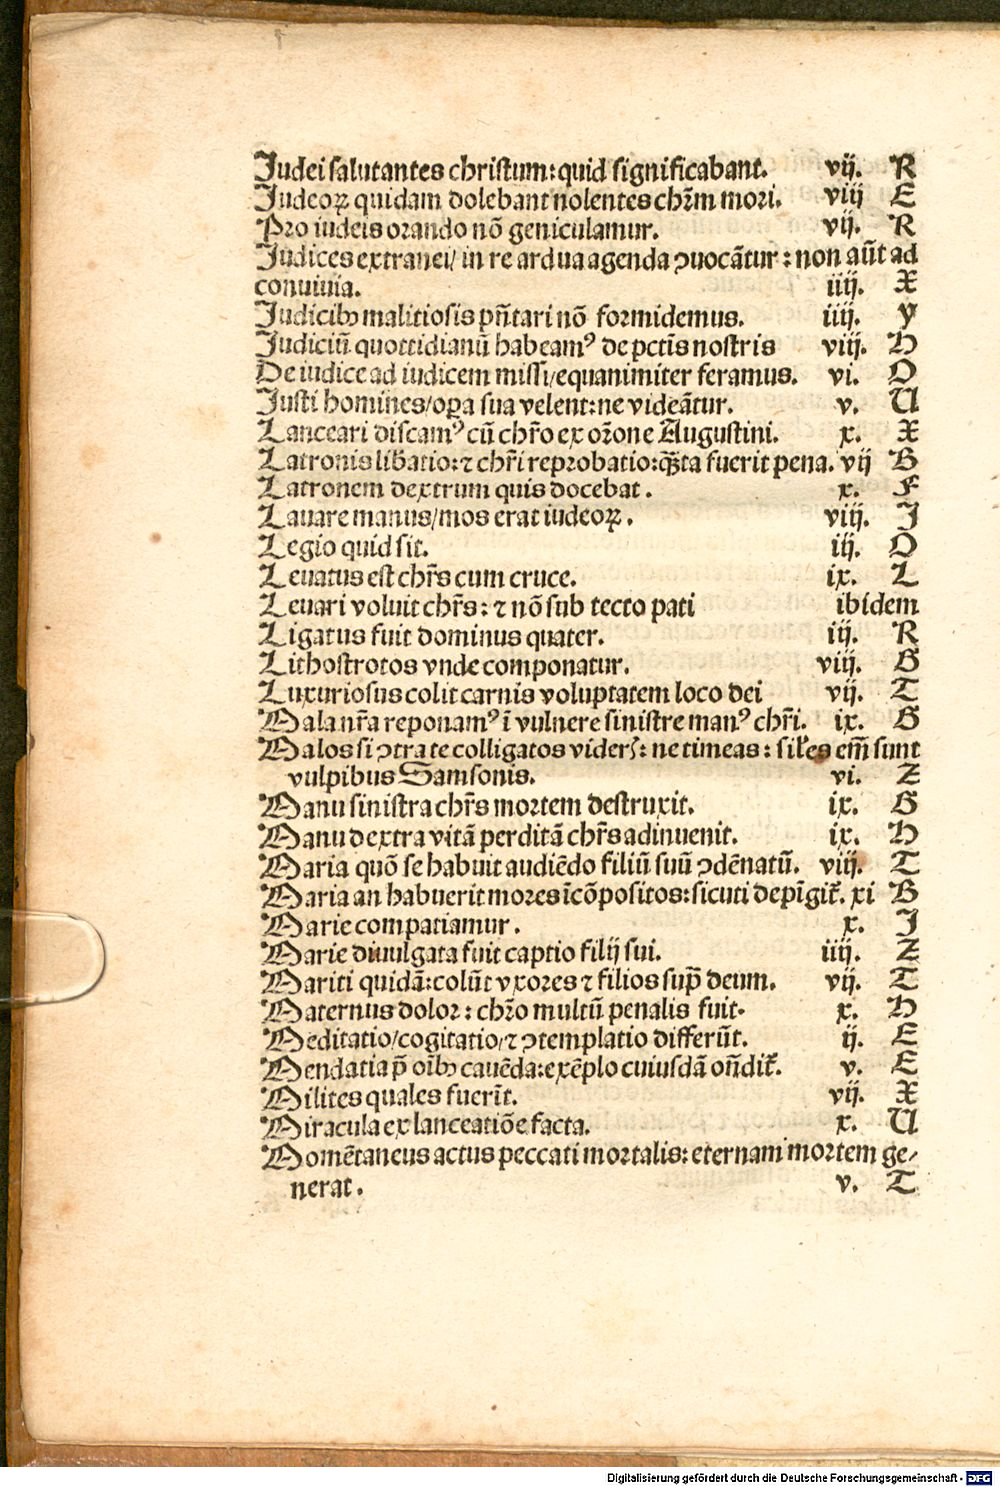 Judei salutantes christum: quid significabant. vij. R
Judeoꝝ quidam dolebant nolentes chr̃m mori. viij E
Pro iudeis orando nõ geniculamur. vij. R
Judices extranei/ in re ardua agenda ꝓuocãtur: non aũt ad
conuiuia. iiij. X
Judicibꝫ malitiosis pñtari nõ formidemus. iiij. Y
Judiciũ quottidianũ habeamꝰ de pctĩs nostris viij. H
De iudice ad iudicem missi/ equanimiter feramus. vi. O
Justi homines/ oꝑa sua velent: ne videãtur. v. U
Lanceari discamꝰ cũ chr̃o ex or̃one Augustini. x. X
Latronis libatio: ⁊ chr̃i reprobatio: q̃ꝫta fuerit pena. vij B
Latronem dextrum quis docebat. x. F
Lauare manus/ mos erat iudeoꝝ. viij. J
Legio quid sit. iij. O
Leuatus est chr̃s cum cruce. ix. L
Leuari voluit chr̃s: ⁊ nõ sub tecto pati ibidem
Ligatus fuit dominus quater. iij. R
Lithostrotos vnde componatur. viij. G
Luxuriosus colit carnis voluptatem loco dei vij. T
Mala nr̃a reponamꝰ ĩ vulnere sinistre manꝰ chr̃i. ix. G
Malos si ꝯtra te colligatos videris: ne timeas: siles em̃ sunt
vulpibus Samsonis. vi. Z
Manu sinistra chr̃s mortem destruxit. ix. G
Manu dextra vitã perditã chr̃s adinuenit. ix. H
Maria quõ se habuit audiẽdo filiũ suũ ꝯdẽnatũ. viij. T
Maria an habuerit mores ĩcõpositos: sicuti depĩgit̃. xi B
Marie compatiamur. x. J
Marie diuulgata fuit captio filij sui. iiij. Z
Mariti quidã: colũt vxores ⁊ filios sup̃ deum. vij. T
Maternus dolor: chr̃o multũ penalis fuit. x. H
Meditatio/ cogitatio/ ⁊ ꝯtemplatio differũt. ij. E
Mendatia p̃ oĩbꝫ cauẽda: exẽplo cuiusdã oñdit̃. v. E
Milites quales fuerĩt. vij. X
Miracula ex lanceatiõe facta. x. U
Momẽtaneus actus peccati mortalis: eternam mortem ge⸗
nerat. v. T
Digitalisierung gefördert durch die Deutsche Forschungsgemeinschaft - DFG